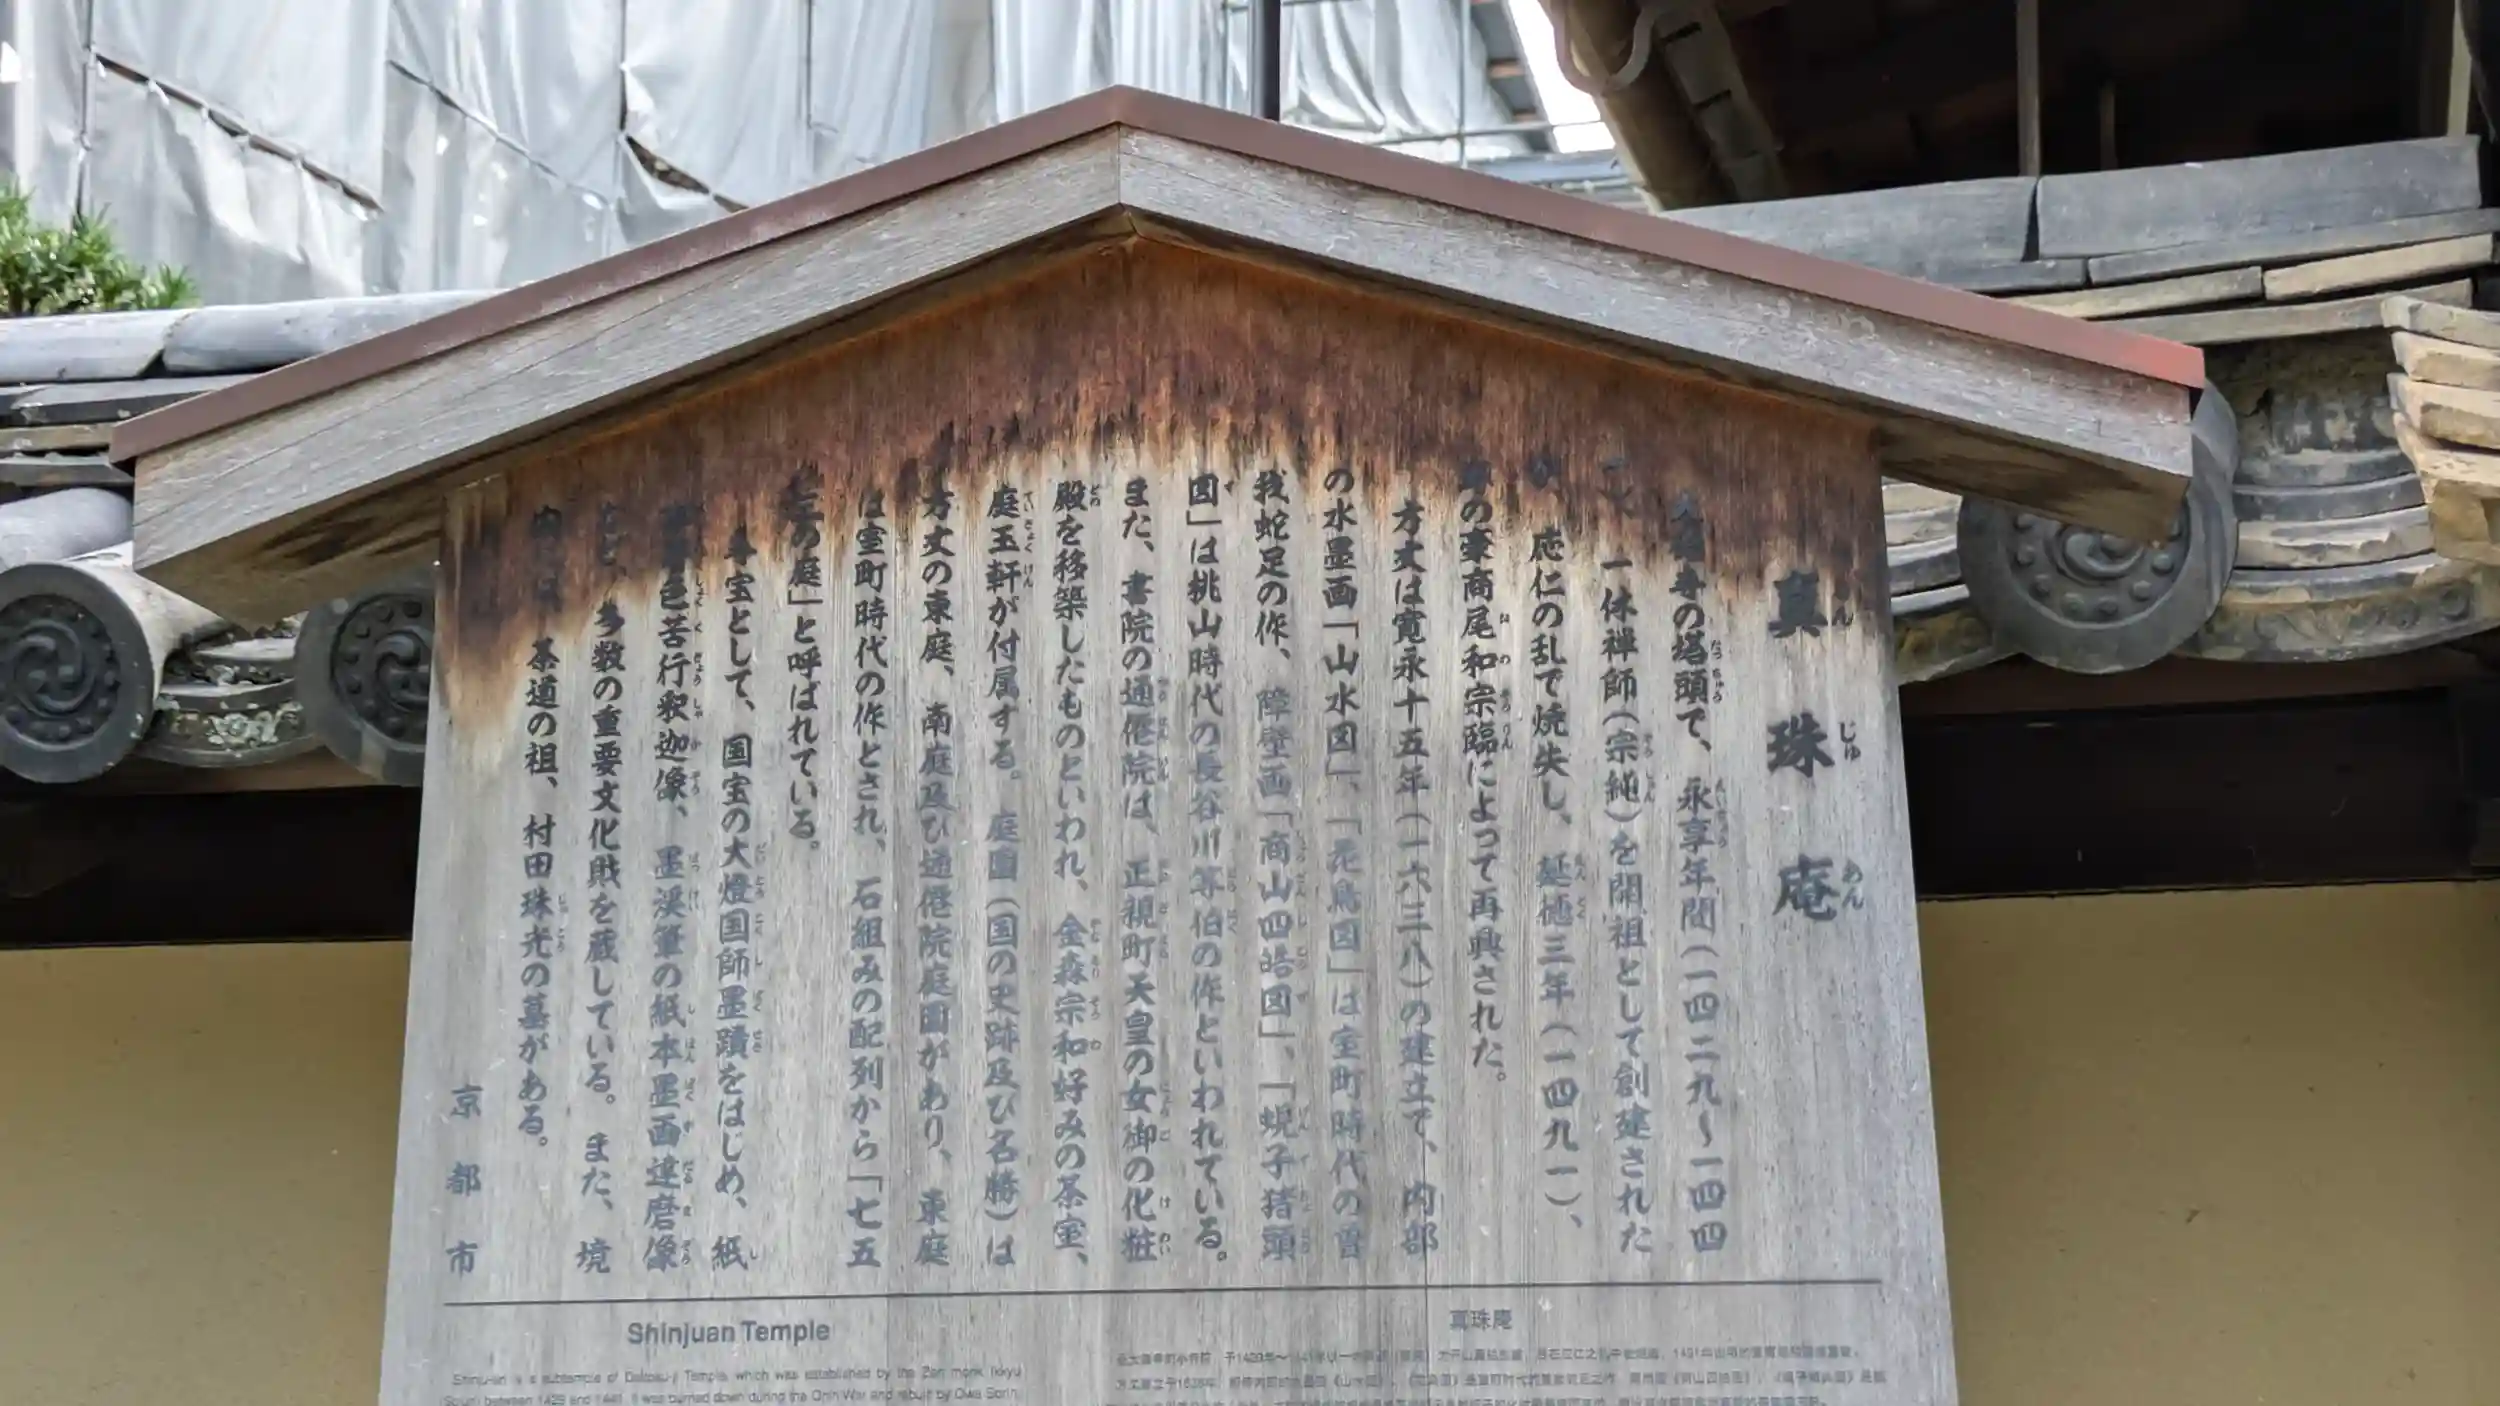 真珠庵
大徳寺の塔頭で、永享年間(一四二九〜一四四
一休禅師(宗純)を開祖として創建された
応仁の乱で焼失し、延徳三年(一四九一)、
の豪商尾和宗臨によって再興された。
方丈は寛永十五年(一六三八)の建立で、内部
の水墨画「山水図」、「花鳥図」は室町時代の曽
我蛇足の作、障壁画「商山四皓図」、「蜆子猪頭
図」は桃山時代の長谷川等伯の作といわれている。
また、書院の通僊院は、正親町天皇の女御の化粧
殿を移築したものといわれ、金森宗和好みの茶室、
庭玉軒が付属する。庭園(国の史跡及び名勝)は
方丈の東庭、南庭及び通僊院庭園があり、東庭
は室町時代の作とされ、石組みの配列から「七五
三の庭」と呼ばれている。
寺宝として、国宝の大燈国師墨蹟をはじめ、紙
色苦行釈迦像、墨渓筆の紙本墨画達磨像
など、多数の重要文化財を蔵している。また、境
には、茶道の祖、村田珠光の墓がある。
京都市
Shinjuan Temple
Shinju-an is a subtemple of Daitoku-ji Temple, which was established by the Zen monk Ikkyu
Sojun between 1429 and 1441. It was burned down during the Onin War and rebuilt by Owa Sorin,
真珠庵